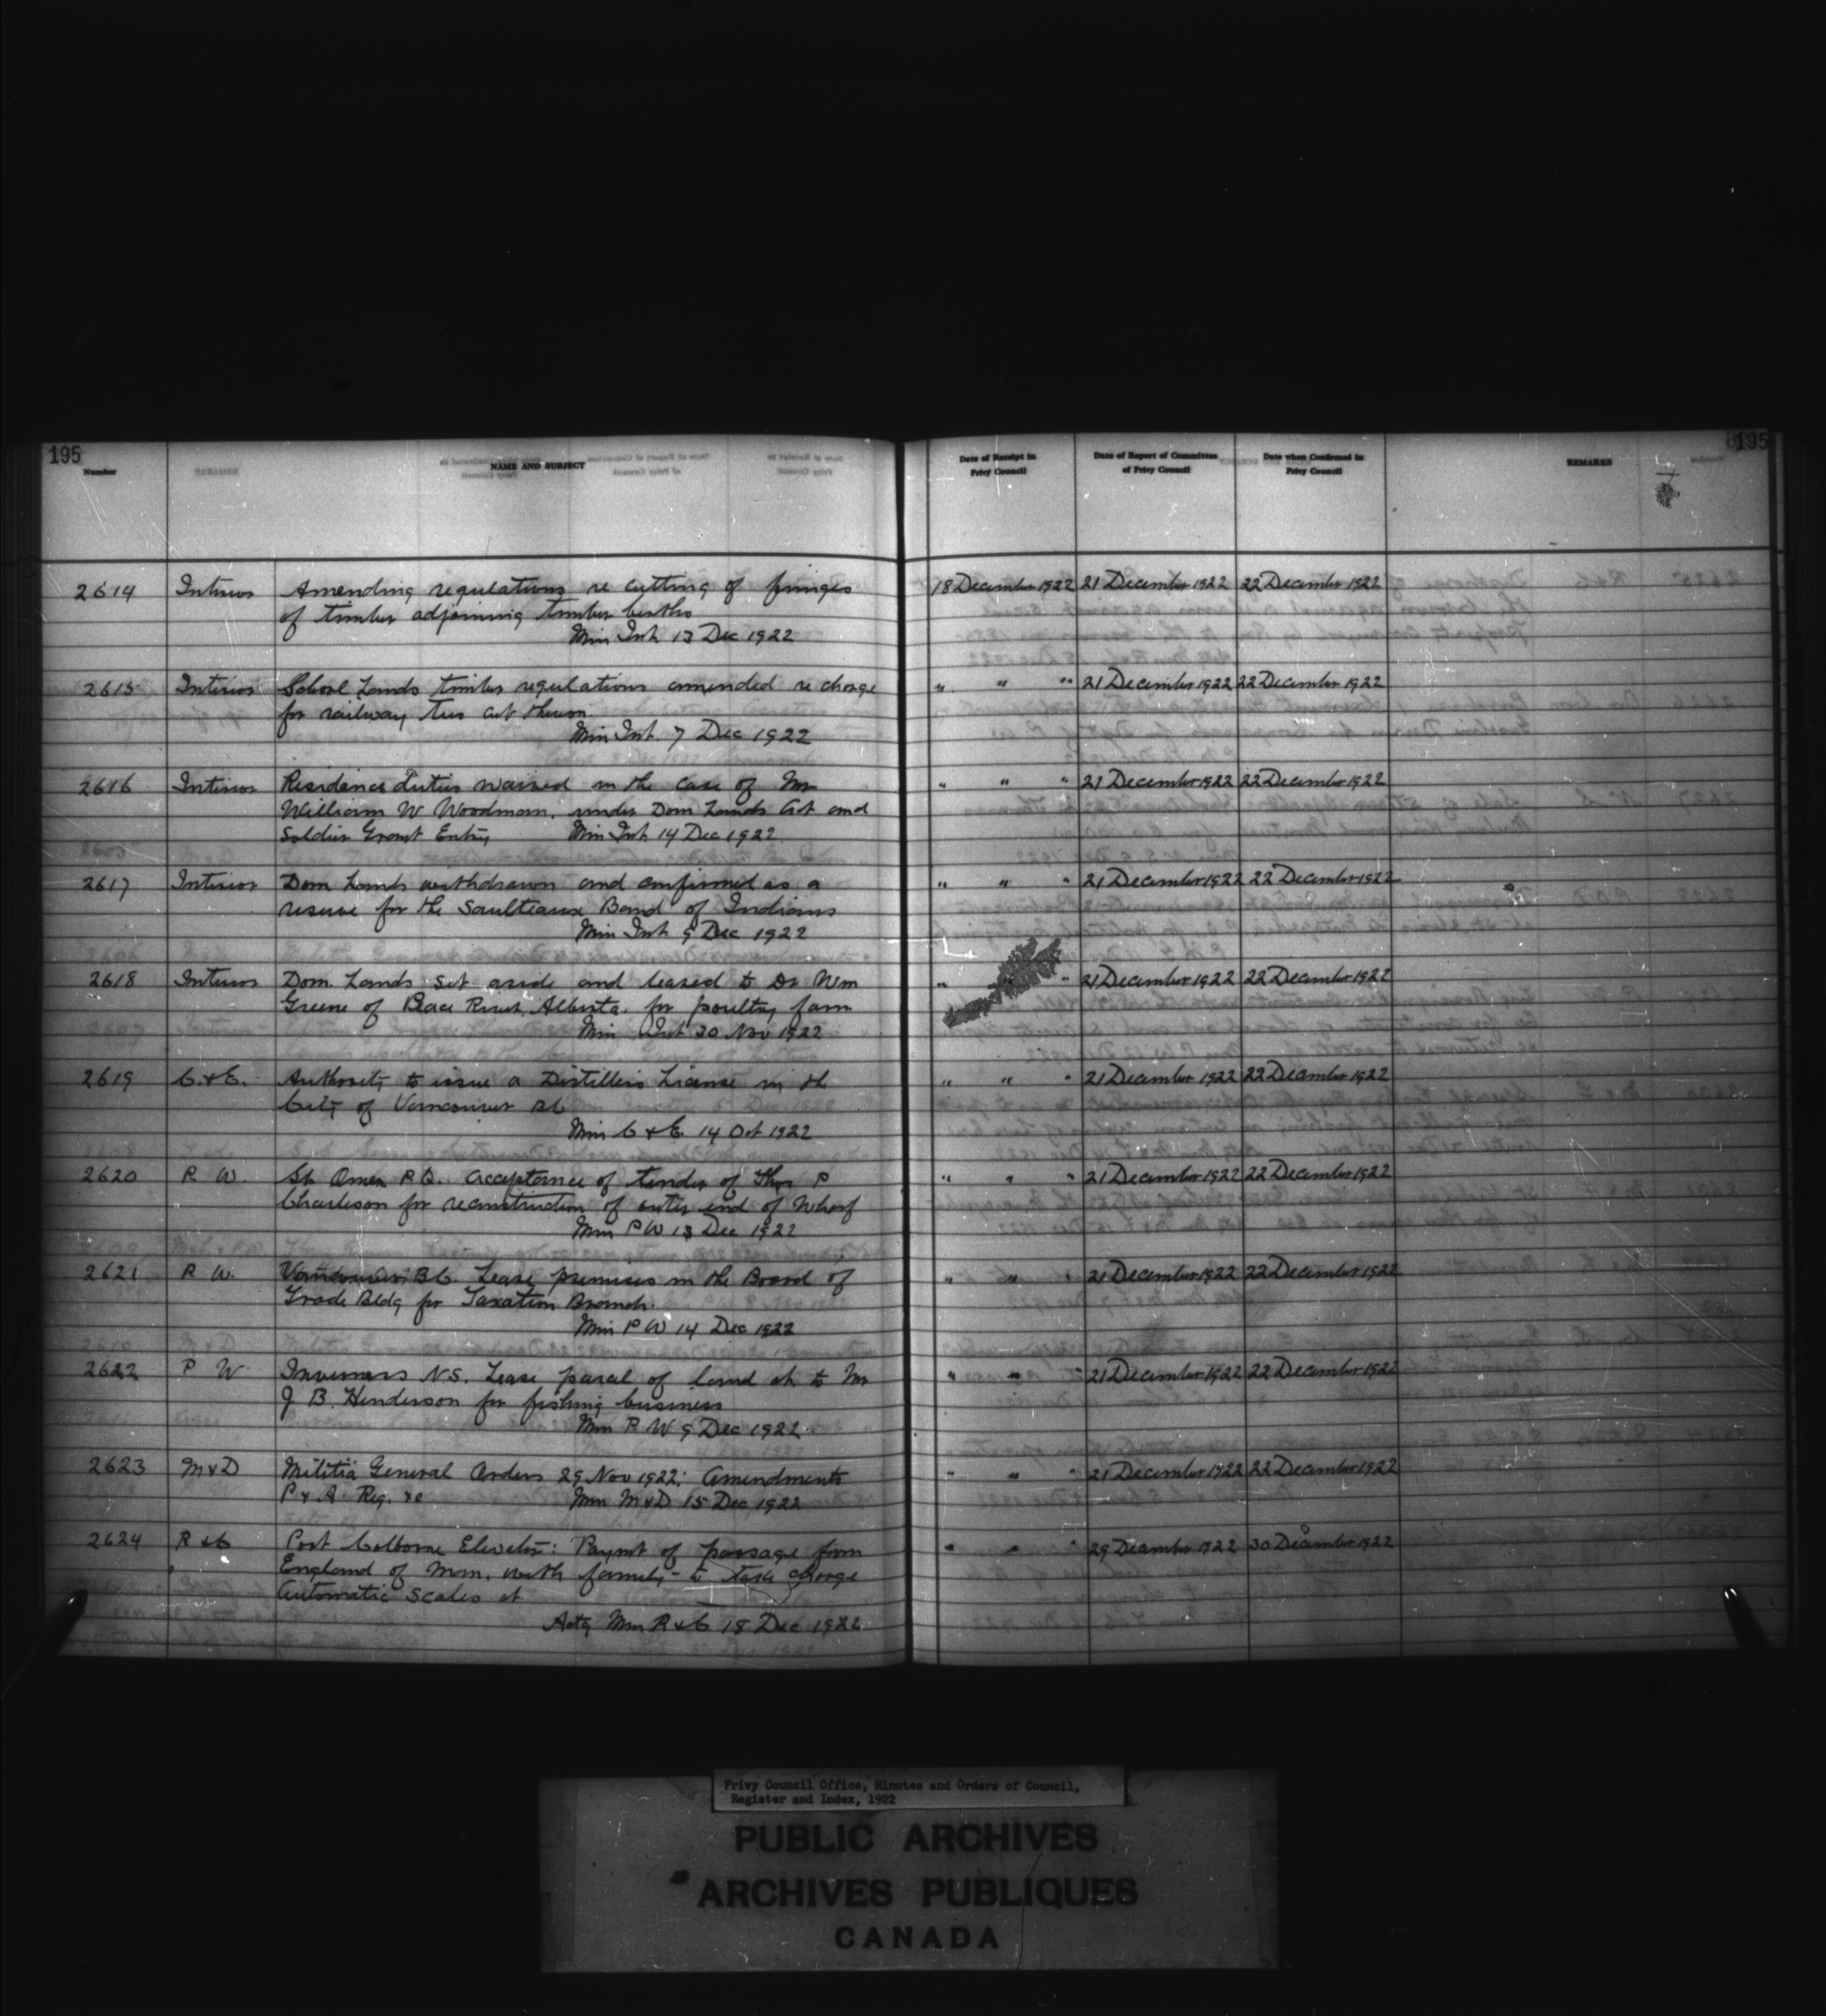 195
195
Number
NAME AND SUBJECT
Date of Receipt in
Privy Council
Date of Report of Committee
of Privy Council
Date when Confirmed in
Privy Council
REMARKS
2614 Interior Amending regulations re cutting of fringes 18 December 1922 21 December 1922 22 December 1922
of timber adjoining timber berths
Min Int. 13 Dec 1922
2615 Interior School Lands timber regulations amended re charge " " " 21 December 1922 22 December 1922
for railway ties cut thereon
Min Int. 7 Dec 1922
2616 Interior Residence duties waived in the case of Mr " " " 21 December 1922 22 December 1922
William W Woodman, under Dom Lands Act and
Soldier Grant Entry Min Int 14 Dec 1922
2617 Interior Dom Lands withdrawn and confirmed as a " " " 21 December 1922 22 December 1922
reserve for the Saulteaux Band of Indians
Min Int 9 Dec 1922
2618 Interior Dom. Lands set aside and leased to Dr Wm " " 21 December 1922 22 December 1922
Greene of Peace River, Alberta, for poultry farm
Min Int 30 Nov 1922
2619 C. & E. Authority to issue a Distillers License in the " " " 21 December 1922 22 December 1922
City of Vancouver BC
Min C & E 14 Oct 1922
2620 P. W. St. Omer P.Q. acceptance of tender of Thos P " " " 21 December 1922 22 December 1922
Charleson for reconstruction of outer end of Wharf
Min P W 13 Dec 1922
2621 P. W. Vancouver B.C. Lease premises in the Board of " " " 21 December 1922 22 December 1922
Trade Bldg for Taxation Branch.
Min P W 14 Dec 1922
2622 P W Inverness N.S. Lease parcel of land at to Mr " " " 21 December 1922 22 December 1922
J. B. Henderson for fishing business
Min P. W 9 Dec 1922
2623 M & D Militia General Orders 29 Nov 1922: Amendments " " " 21 December 1922 22 December 1922
P & A. Reg. &c Min M & D 15 Dec 1922
2624 R & C Port Colborne Elevator: Paymt of passage from " " " 29 December 1922 30 December 1922
England of Mom. with family - to take charge
Automatic Scales at
Actg Min R & C 18 Dec 1922
Privy Council Office, Minutes and Orders of Council,
Register and Index, 1922
PUBLIC ARCHIVES
ARCHIVES PUBLIQUES
CANADA